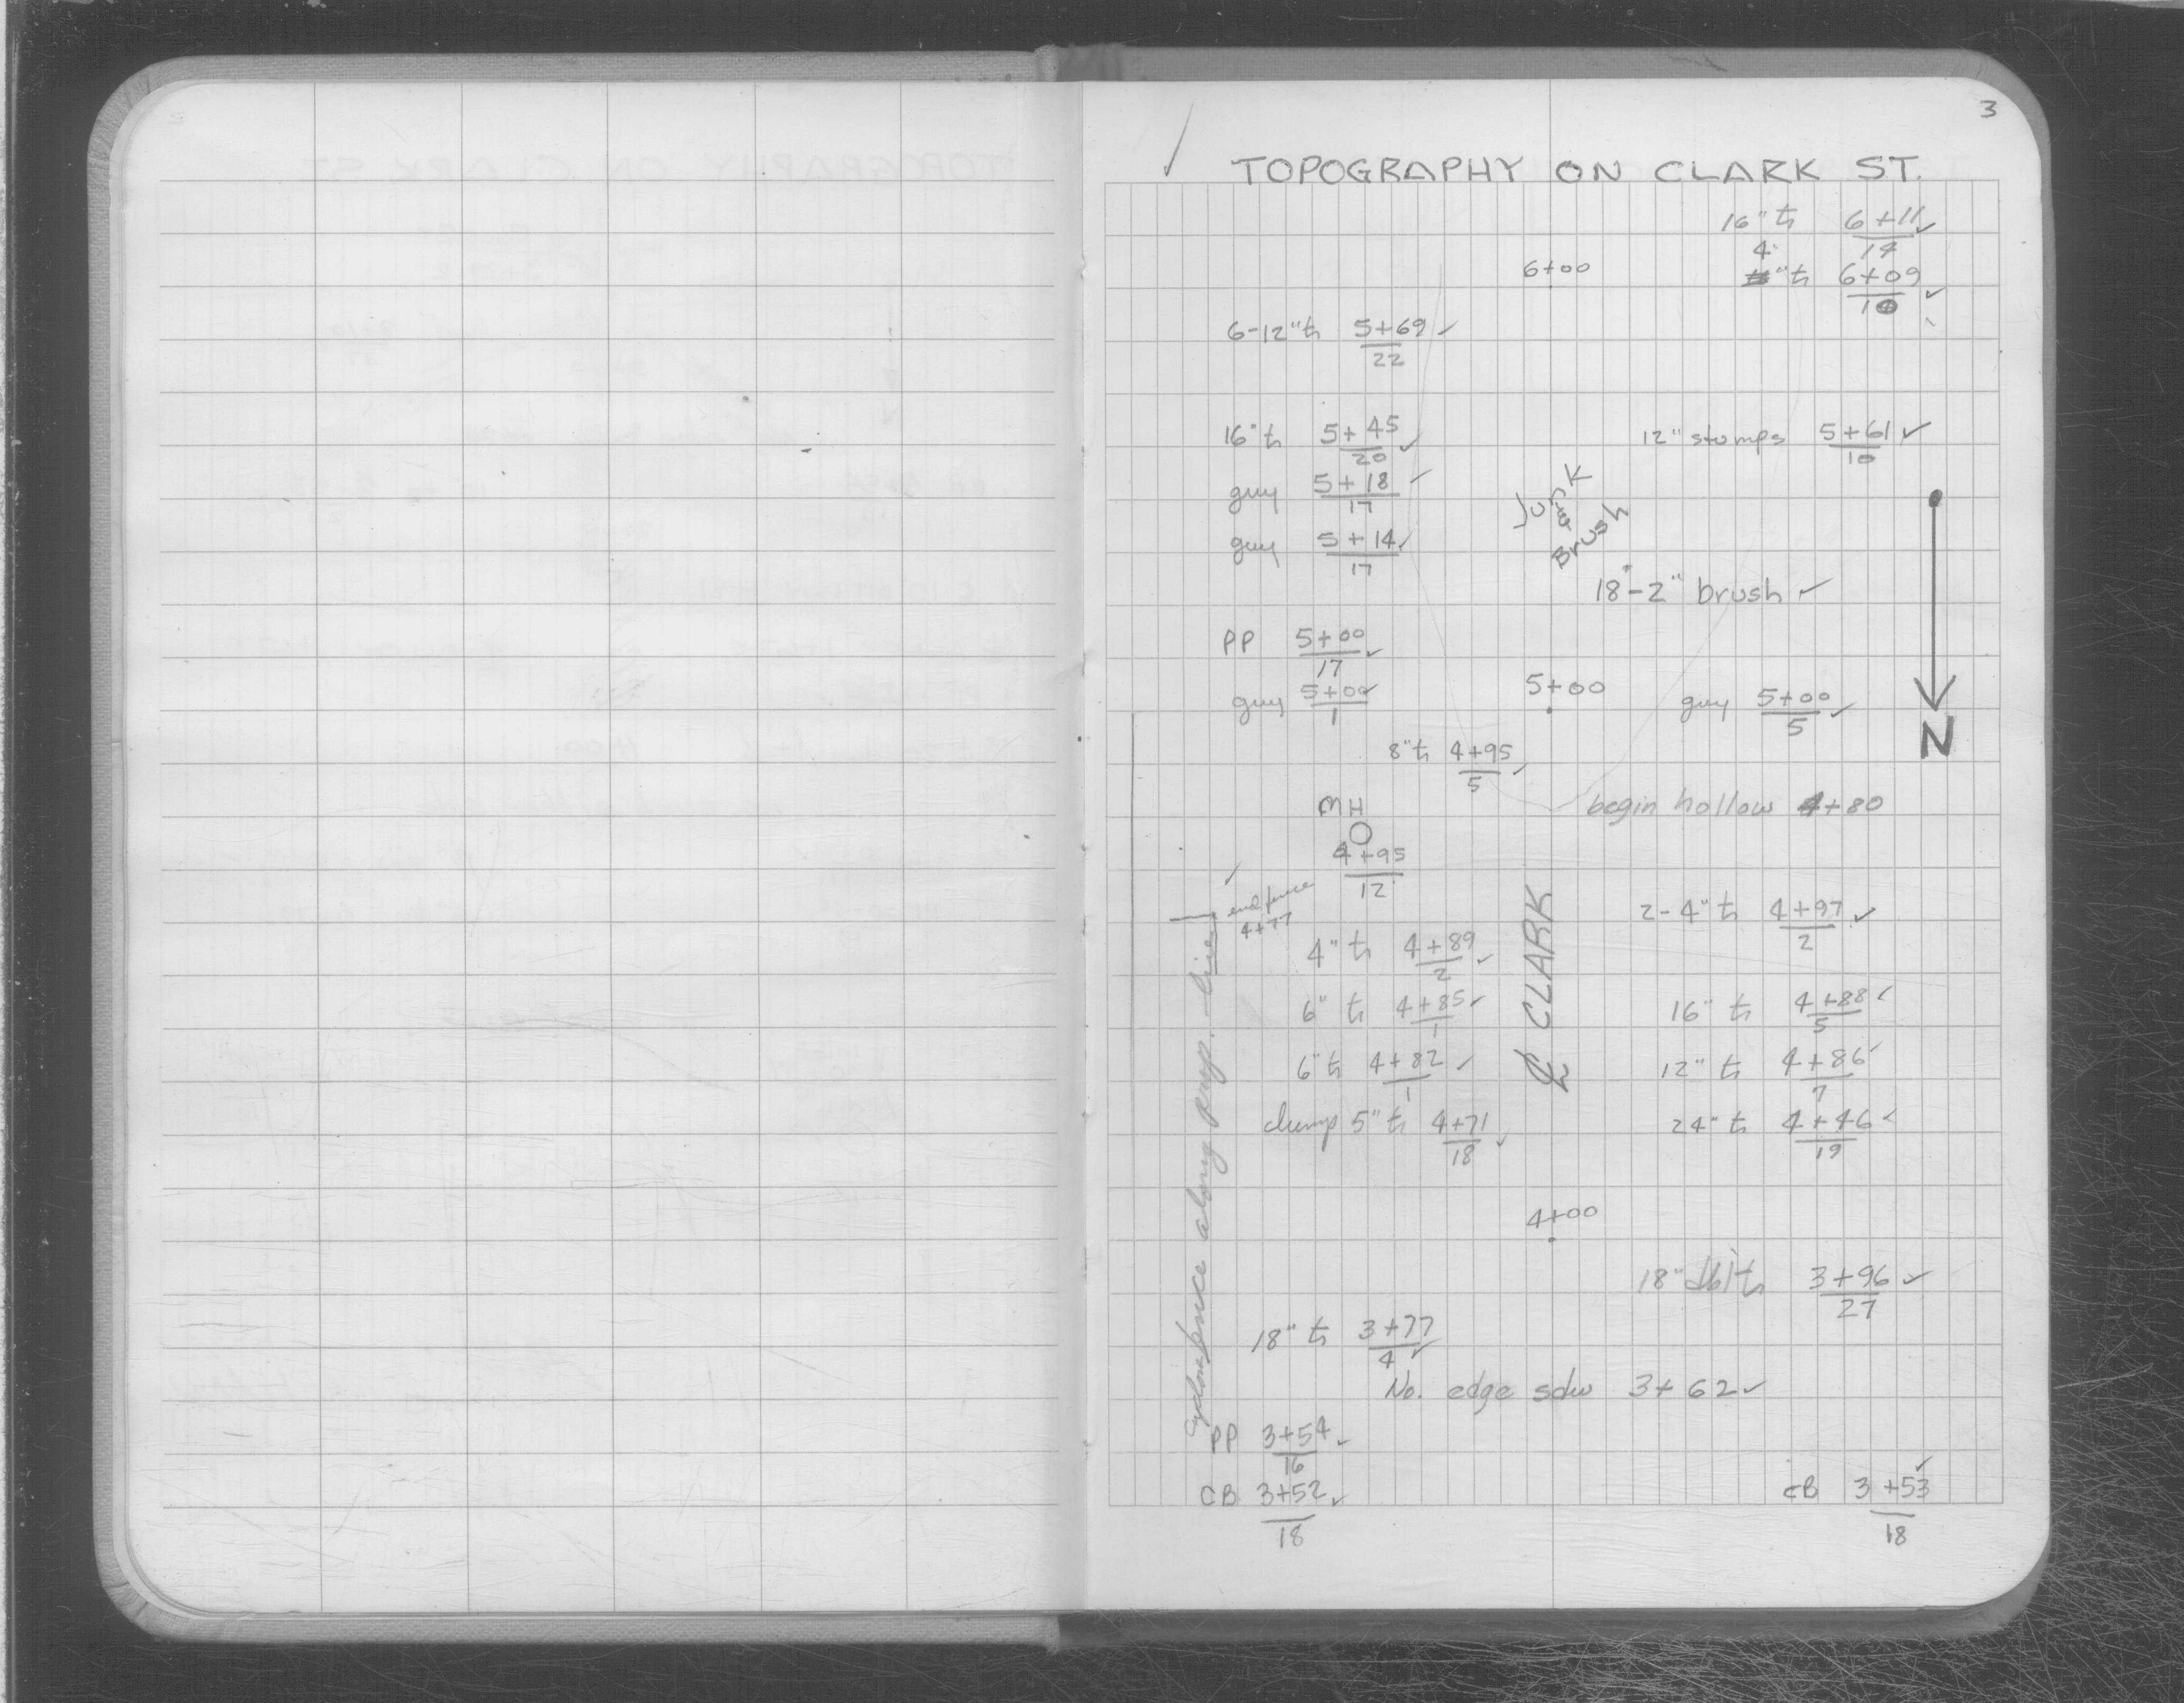 3
TOPOGRAPHY ON CLARK ST.
16" tr 6+11
14
4
" tr 6+09
10
6+00
6-12" tr 5+69
22
16" tr 5+45
20
12" stumps 5+61
10
guy 5+18
17
Junk
Brush
guy 5+14
17
18"-2" brush
PP 5+00
17
guy 5+00
1
5+00
guy 5+00
5
N
8" tr 4+95
5
MH
4+95
12
begin hollow 4+80
end fence
4+77
2-4" tr 4+97
2
4" tr 4+89
2
6" tr 4+85
1
16" tr 4+88
5
6" tr 4+82
1
12" tr 4+86
7
℄ CLARK
clump 5" tr 4+71
18
24" tr 4+46
19
cyclone fence along prop. line
4+00
18" dbl tr 3+96
27
18" tr 3+77
4
No. edge sdw 3+62
PP 3+54
16
CB 3+52
18
CB 3+53
18